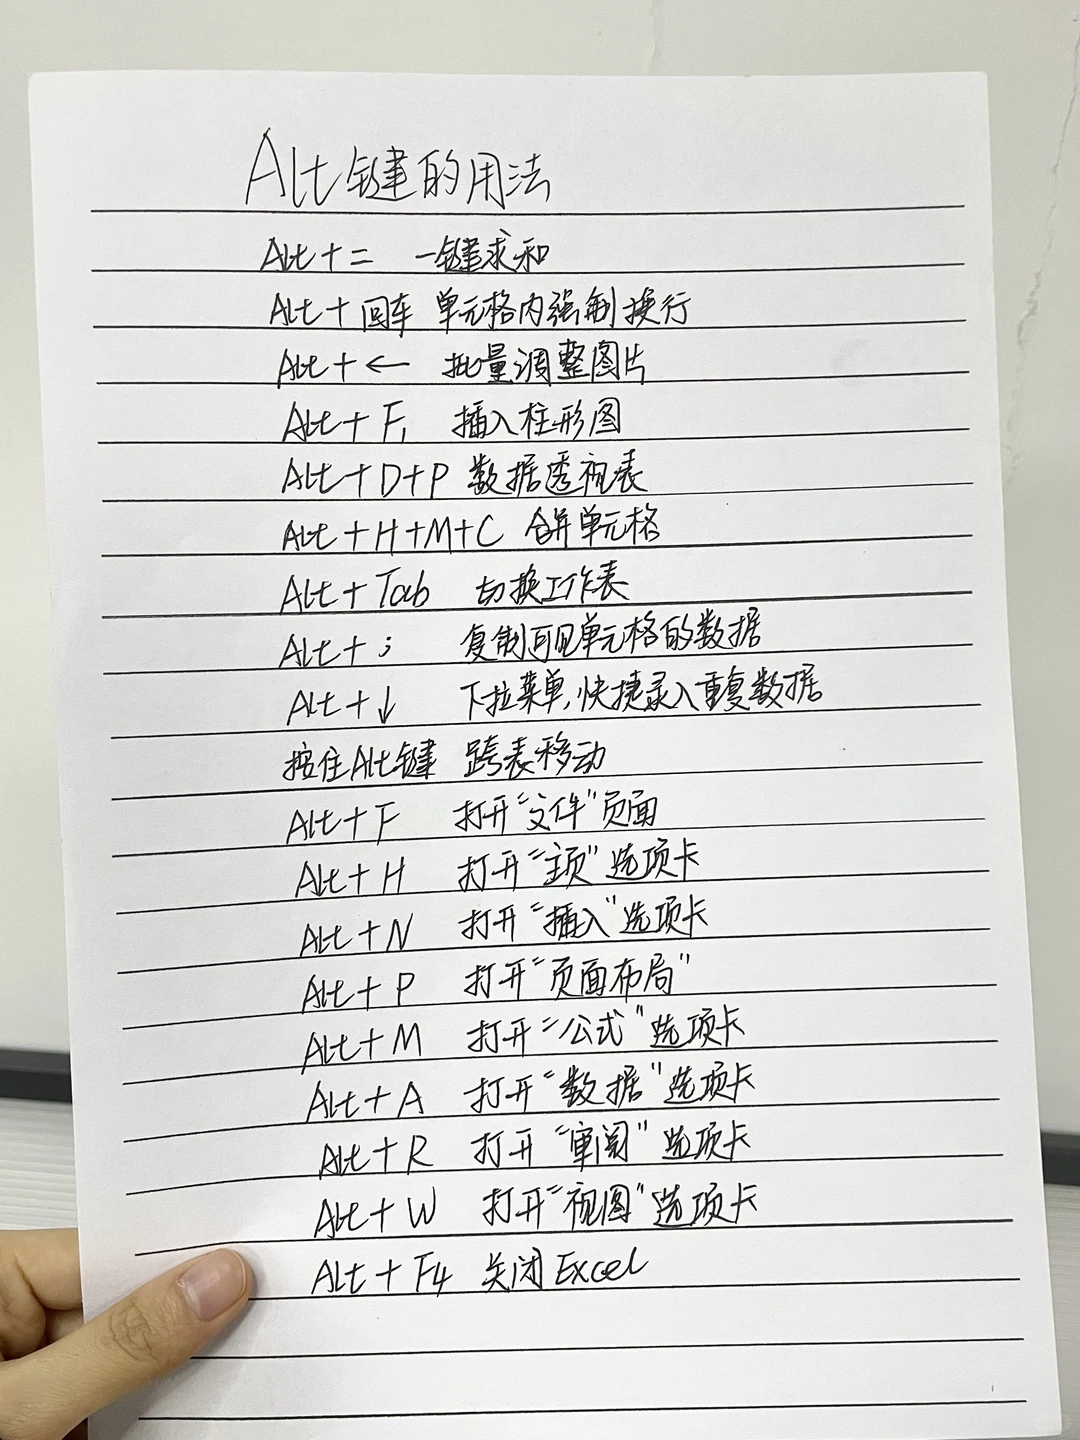 Alt键的用法
Alt+= 一键求和
Alt+回车 单元格内强制换行
Alt+← 批量调整图片
Alt+F1 插入柱形图
Alt+D+P 数据透视表
Alt+H+M+C 合并单元格
Alt+Tab 切换工作表
Alt+; 复制可见单元格的数据
Alt+↓ 下拉菜单,快捷录入重复数据
按住Alt键 跨表移动
Alt+F 打开“文件”页面
Alt+H 打开“主页”选项卡
Alt+N 打开“插入”选项卡
Alt+P 打开“页面布局”
Alt+M 打开“公式”选项卡
Alt+A 打开“数据”选项卡
Alt+R 打开“审阅”选项卡
Alt+W 打开“视图”选项卡
Alt+F4 关闭Excel